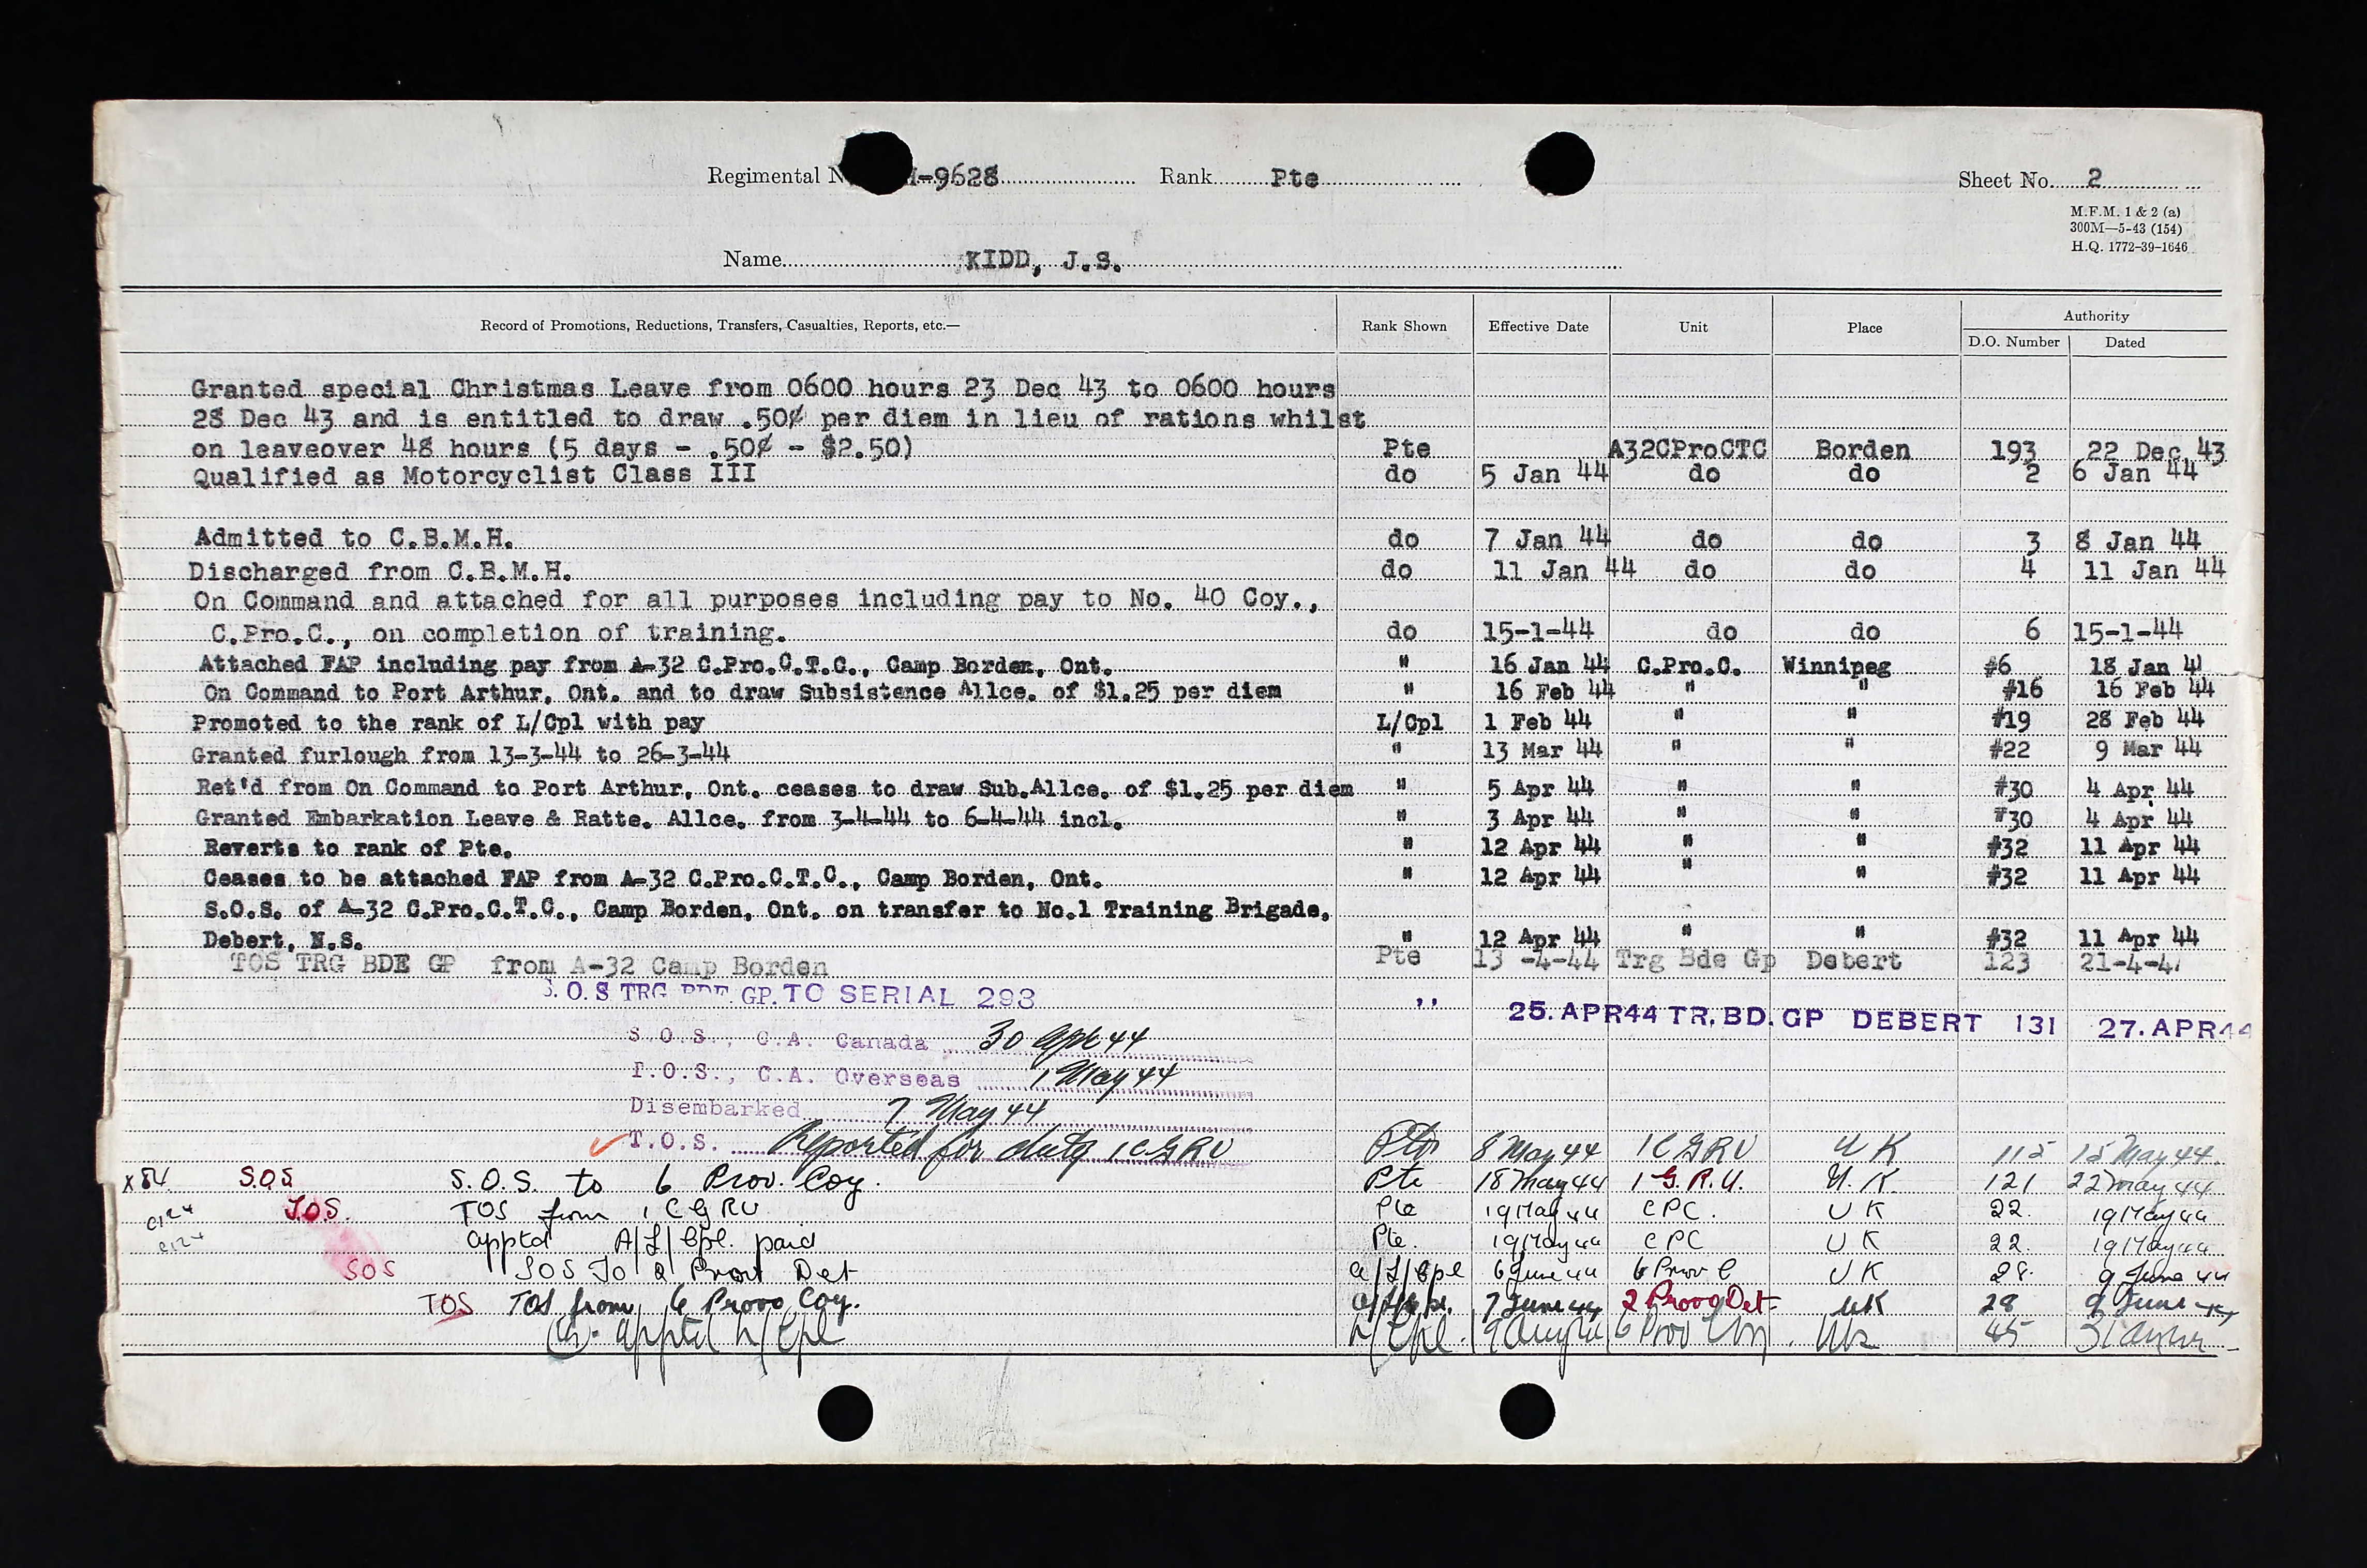 Regimental N H-9628 Rank Pte Sheet No. 2
M.F.M. 1 & 2 (a)
300M—5-43 (154)
H.Q. 1772-39-1646
Name KIDD, J.S.
Record of Promotions, Reductions, Transfers, Casualties, Reports, etc.— Rank Shown Effective Date Unit Place Authority
D.O. Number Dated
Granted special Christmas Leave from 0600 hours 23 Dec 43 to 0600 hours
28 Dec 43 and is entitled to draw .50¢ per diem in lieu of rations whilst
on leaveover 48 hours (5 days - .50¢ - $2.50) Pte A32CProCTC Borden 193 22 Dec 43
Qualified as Motorcyclist Class III do 5 Jan 44 do do 2 6 Jan 44
Admitted to C.B.M.H. do 7 Jan 44 do do 3 8 Jan 44
Discharged from C.B.M.H. do 11 Jan 44 do do 4 11 Jan 44
On Command and attached for all purposes including pay to No. 40 Coy.,
C.Pro.C., on completion of training. do 15-1-44 do do 6 15-1-44
Attached FAP including pay from A-32 C.Pro.C.T.C., Camp Borden, Ont. " 16 Jan 44 C.Pro.C. Winnipeg #6 18 Jan 4
On Command to Port Arthur, Ont. and to draw Subsistence Allce. of $1.25 per diem " 16 Feb 44 " " #16 16 Feb 44
Promoted to the rank of L/Cpl with pay L/Cpl 1 Feb 44 " " #19 28 Feb 44
Granted furlough from 13-3-44 to 26-3-44 " 13 Mar 44 " " #22 9 Mar 44
Ret'd from On Command to Port Arthur, Ont. ceases to draw Sub.Allce. of $1.25 per diem " 5 Apr 44 " " #30 4 Apr 44
Granted Embarkation Leave & Ratte. Allce. from 3-4-44 to 6-4-44 incl. " 3 Apr 44 " " #30 4 Apr 44
Reverts to rank of Pte. " 12 Apr 44 " " #32 11 Apr 44
Ceases to be attached FAP from A-32 C.Pro.C.T.C., Camp Borden, Ont. " 12 Apr 44 " " #32 11 Apr 44
S.O.S. of A-32 C.Pro.C.T.C., Camp Borden, Ont. on transfer to No.1 Training Brigade,
Debert, N.S. " 12 Apr 44 " " #32 11 Apr 44
TOS TRG BDE GP from A-32 Camp Borden Pte 13 -4-44 Trg Bde Gp Debert 123 21-4-4
S.O.S TRG BDE. GP. TO SERIAL 293 ,, 25. APR44 TR. BD. GP DEBERT 131 27. APR44
S.O.S., C.A. Canada 30 Apl 44
T.O.S., C.A. Overseas 1 May 44
Disembarked 7 May 44
T.O.S. Reported for duty 1 CGRU Pte 8 May 44 1CGRU UK 115 15 May 44
x 84 S.O.S S.O.S. to 6 Prov. Coy. Pte 18 May 44 1 G.R.U. U.K. 121 22 May 44
T.O.S. TOS from 1 CGRU Pte 19 May 44 CPC. UK 22 19 May 44
apptd A/L/Cpl. paid Pte. 19 May 44 CPC UK 22 19 May 44
SOS SOS To 2 Prov Det a/L/Cpl 6 June 44 6 Prov C UK 28 9 June 44
TOS TOS from 6 Provo Coy. a/L/Cpl. 7 June 44 2 Provo Det UK 28 9 June 44
apptd L/Cpl L/Cpl. UK 45